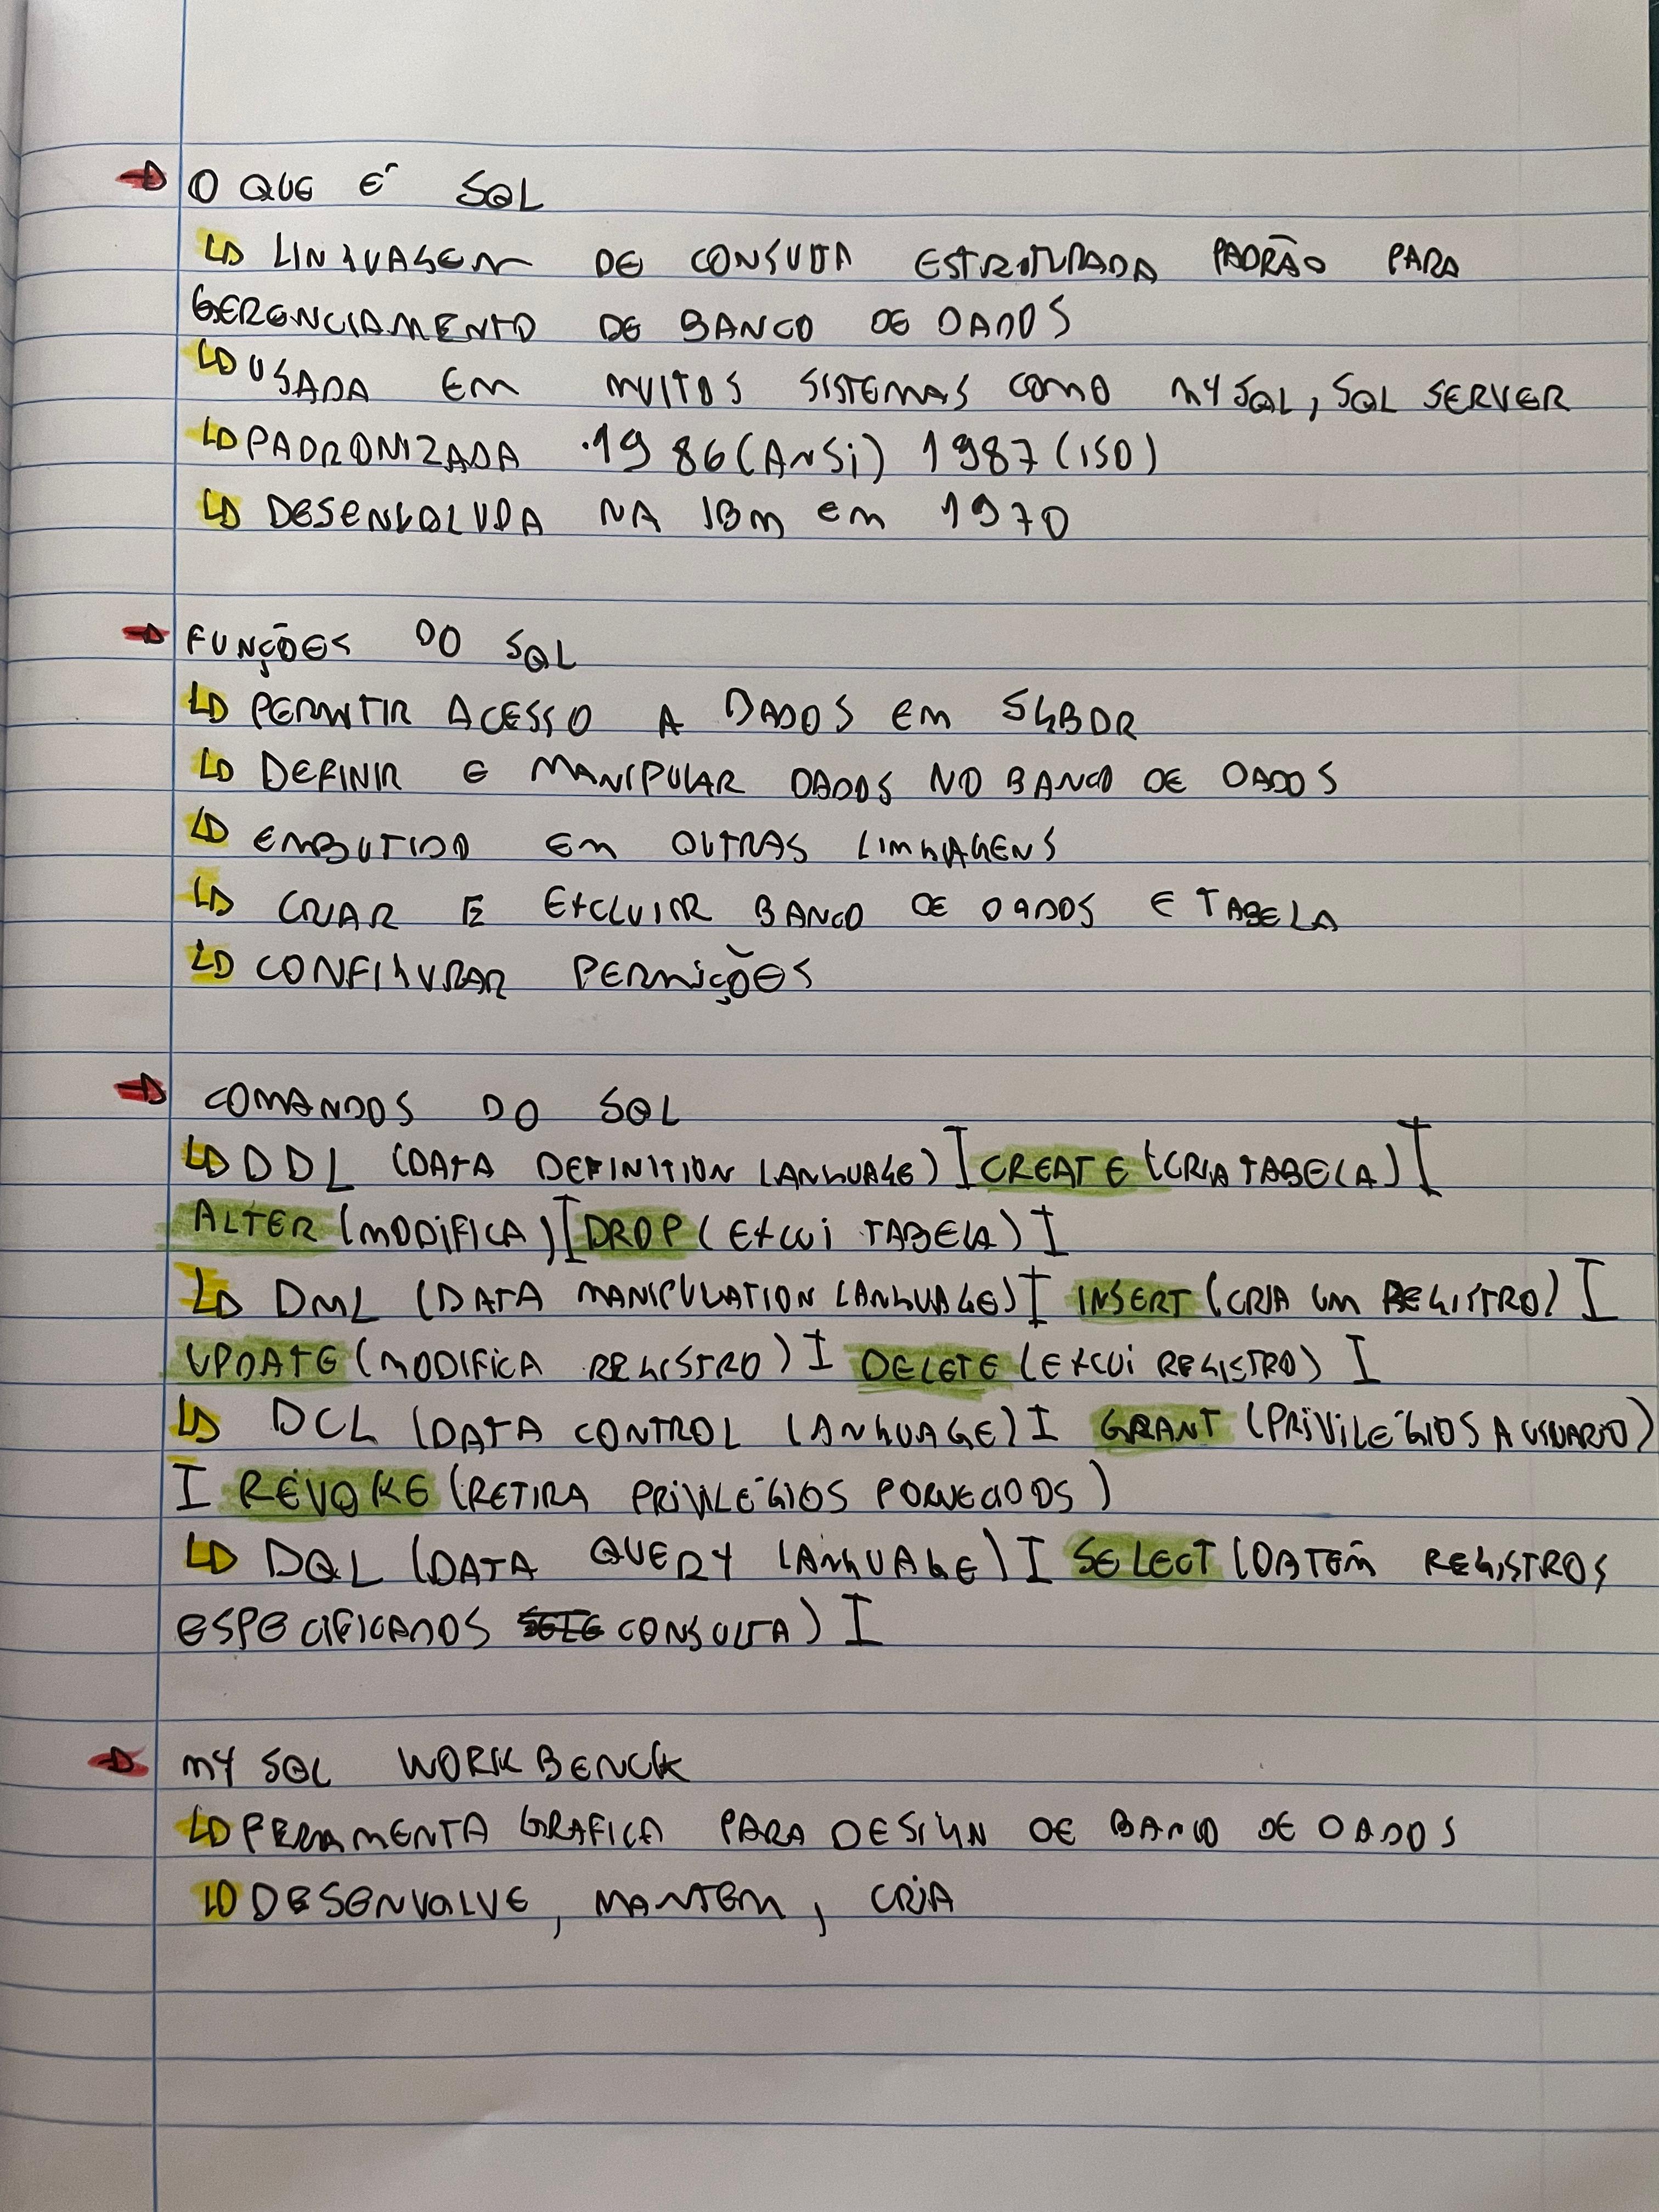 → O QUE É SQL
↳ LINGUAGEM DE CONSULTA ESTRUTURADA PADRÃO PARA
GERENCIAMENTO DE BANCO DE DADOS
↳ USADA EM MUITOS SISTEMAS COMO MY SQL, SQL SERVER
↳ PADRONIZADA .1986 (ANSI) 1987 (ISO)
↳ DESENVOLVIDA NA IBM EM 1970
→ FUNÇÕES DO SQL
↳ PERMITIR ACESSO A DADOS EM SGBDR
↳ DEFINIR E MANIPULAR DADOS NO BANCO DE DADOS
↳ EMBUTIDO EM OUTRAS LINGUAGENS
↳ CRIAR E EXCLUIR BANCO DE DADOS E TABELA
↳ CONFIGURAR PERMIÇÕES
→ COMANDOS DO SQL
↳ DDL (DATA DEFINITION LANGUAGE) I CREATE (CRIA TABELA) I
ALTER (MODIFICA) I DROP (EXCUI TABELA) I
↳ DML (DATA MANIPULATION LANGUAGE) I INSERT (CRIA UM REGISTRO) I
UPDATE (MODIFICA REGISTRO) I DELETE (EXCUI REGISTRO) I
↳ DCL (DATA CONTROL LANGUAGE) I GRANT (PRIVILÉGIOS A USUARIO)
I REVOKE (RETIRA PRIVILÉGIOS FORNECIDOS)
↳ DQL (DATA QUERY LANGUAGE) I SELECT (OBTEM REGISTROS
ESPECIFICADOS CONSULTA) I
→ MY SQL WORKBENCK
↳ FERRAMENTA GRAFICA PARA DESIGN DE BANCO DE DADOS
↳ DESENVOLVE, MANTEM, CRIA